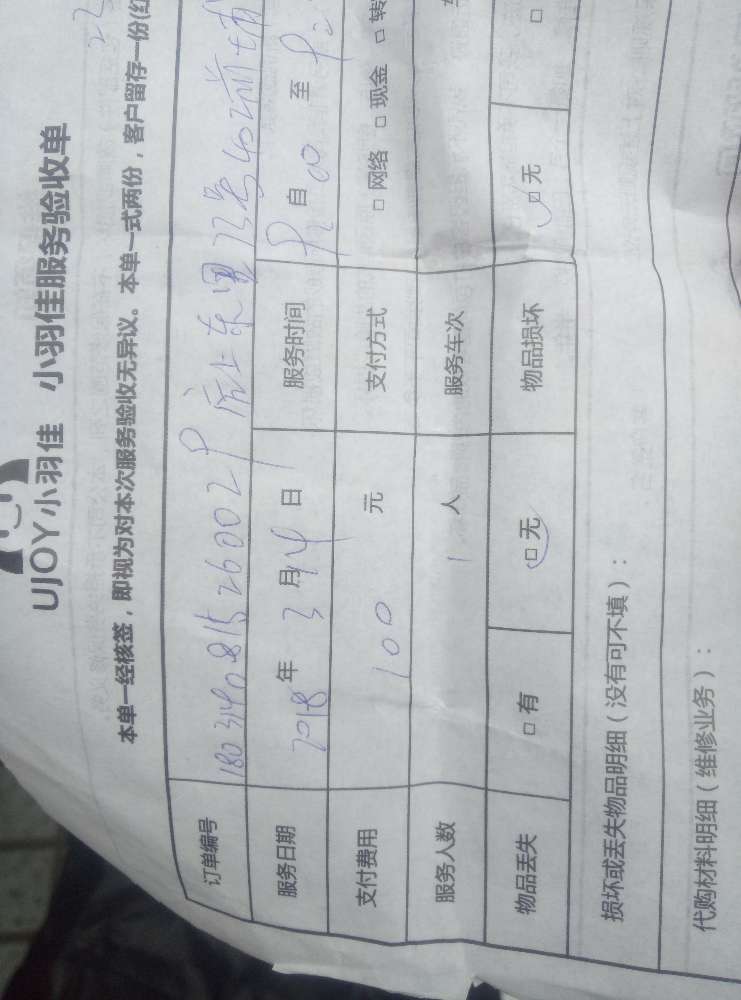 UJOY小羽佳 小羽佳服务验收单
本单一经核签，即视为对本次服务验收无异议。本单一式两份，客户留存一份(红
订单编号 180314081526002
服务日期 2018年3月14日 服务时间 自 00 至
支付费用 100 元 支付方式 □网络 □现金 □转
服务人数 1 人 服务车次
物品丢失 □有 □无 物品损坏 □无 □
损坏或丢失物品明细（没有可不填）：
代购材料明细（维修业务）：